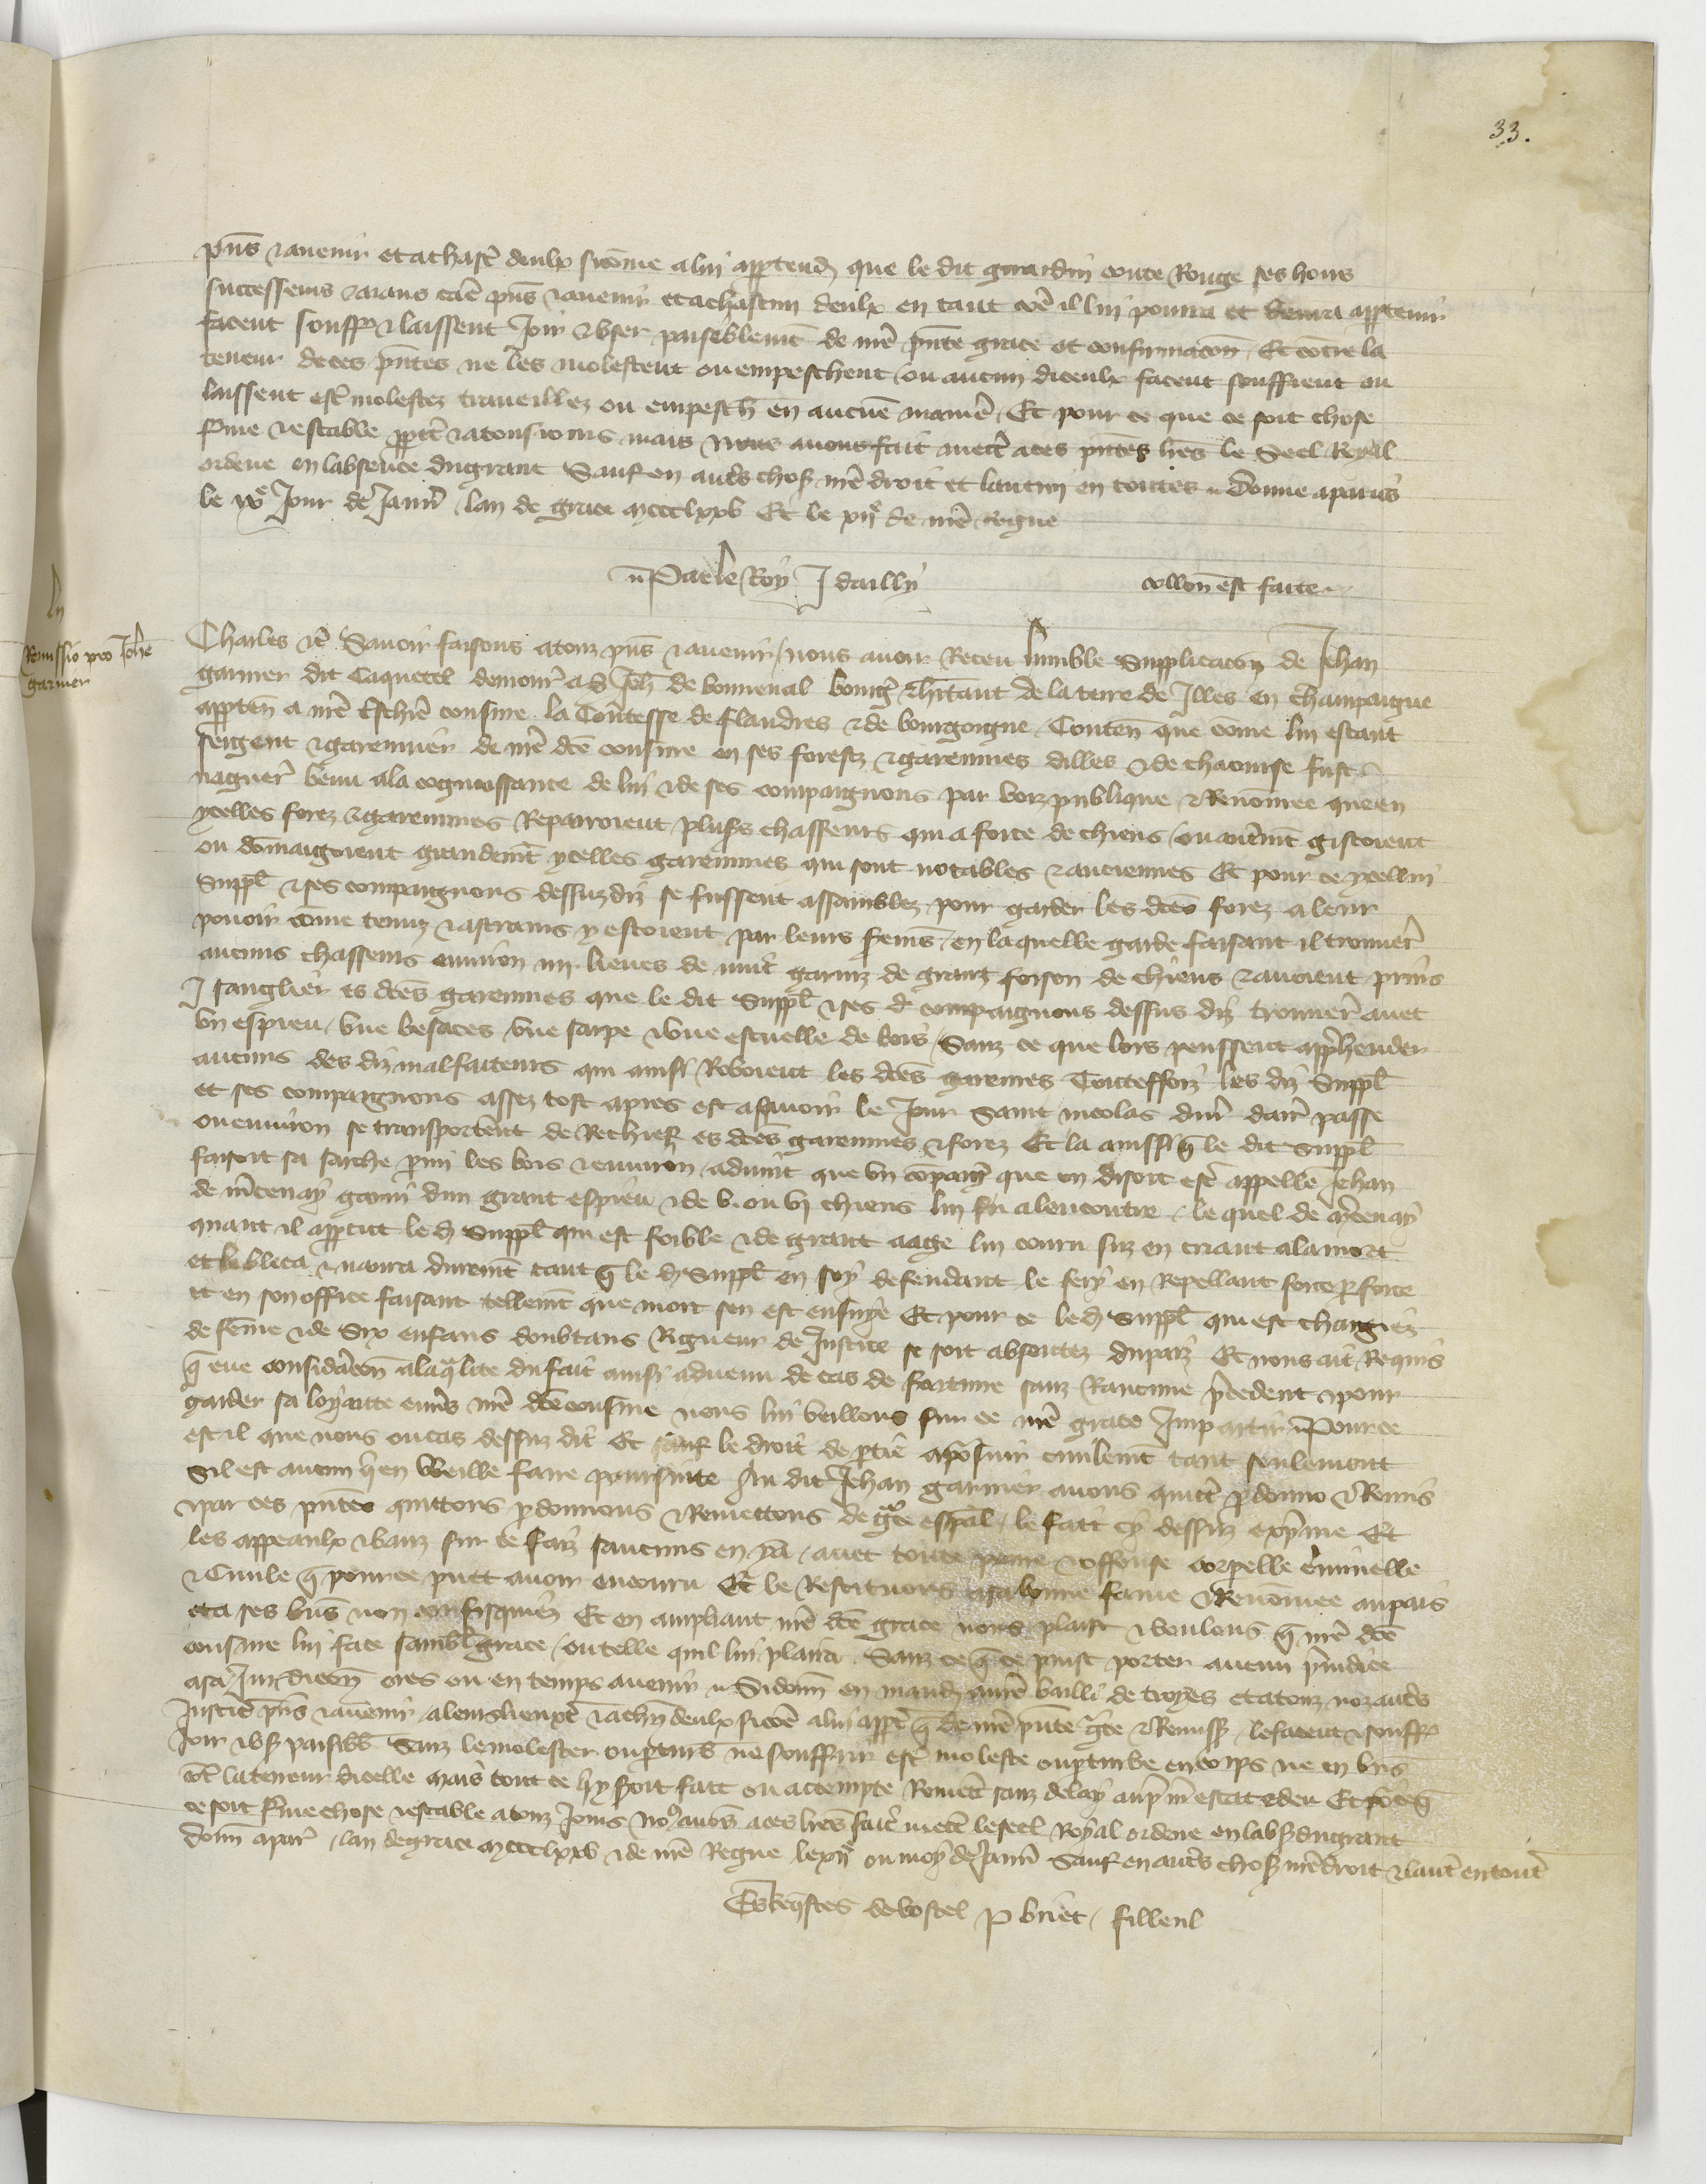 33.
pñs & avenir et a chascũ deulx si cõme a lui apptendᷣ que le dit girardin conte Rouge ses hoirs
successeurs & aians cãe pñs & avenir et a chascun deulx en tant cõe il lui pourra et devra appartenir
facent souffrᷣ & laissent Joir & user paisiblemt de nr̃e pñte grace et confirmacõn Et cõtre la
teneur de ces pñtes ne les molestent ou empeschent ou aucun diceulx facent souffrent ou
laissent estr̃ molestez traveillez ou empeschᷣ en aucũe maniẽ Et pour ce que ce soit chose
ferme & estable ppetᷣ & a tousiours mais Nous avons fait mectr̃ a ces pñtes lr̃es le Seel Royal
ordene en labsence du grant Sauf en autrs chosᷣ nr̃e droit et lautruy en toutes Donne a paris
le xve Jour de Janvr̃ lan de grace mccclxxv Et le xije de nr̃e regne
Par le Roy J dailly collon est faite
Remissio pro Johẽ
garnier
Charles &c̃ Savoir faisons a touz pñs & avenir nous avoir Receu humble Supplicacõn de Jehan
garnier dit Caquetel demourᷣ a S Jehᷣ de bonneval bourgᷣ & hitant de la terre de Illes en champaigne
apptenᷣ a nr̃e tschiẽ cousine la Contesse de flandres & de bourgoigne Contenᷣ que cõme lui estant
sergent & garennier de nr̃e dc̃e cousine en ses forestz & garennes dilles & de chaourse fust
naguer̃ venu a la cognoissance de lui & de ses compaignons par voix publique & Renõmee que en
ycelles forez & garennes Repairoient plusrs chasseurs qui a force de chiens ou autrem̃t gastoient
ou dõmaigoient grandem̃t ycelles garennes qui sont notables & anciennes Et pour ce ycellui
Suppl̃ & ses compaignons dessuz diz se fussent assamblez pour garder les dc̃es forez a leur
povoir cõme tenuz & astrains y estoient par leurs sermẽs en laquelle garde faisant il trouverᷣ
aucuns chasseurs environ iiij lieues de nuit garniz de grant foison de chiens & avoient prins
J sanglier es dc̃es garennes que le dit Suppl̃ & ses d compaignons dessus diz trouverᷣ avec
un espieu une besaces une sarpe & une escuelle de bois Sanz ce que lors peussent apprehender
aucuns des diz malfaiteurs qui ainsi Roboient les dc̃es garennes Toutesfoiz les diz Suppl̃
et ses compaignons assez tost apres est assavoir le Jour Saint nicolas diverᷣ darrᷣ passe
ou environ se transporterent de Rechief es dc̃es garennes & forez Et la aussi q̃ le dit Suppl̃
faisoit sa sarche parmi les bois & environ advint que un cõpaigᷣ que on disoit estr̃ appelle Jehan
de mᷣcenay garni dun grant espieu & de v. ou vj chiens lui fu alencontre le quel de mᷣcenay
quant il apparcut le dᷣ Suppl̃ qui est foible & de grant aage lui couru sur en criant a la mort
et le bleca & navra durem̃t tant q̃ le dᷣ Suppl̃ en soy defendant le fery en Repellant force par force
et en son office faisant tellem̃t que mort sen est ensuye Et pour ce le dᷣ Suppl̃ qui est chargiez
de fẽme & de Six enfans doubtans Rigueur de Justice se soit absentez du paiz Et nous ait Requis
q̃ eue consideracõn a la qualite du fait ainsi advenu de cas de fortune sanz Rancune pᷣcedent & pour
garder sa loyaute envers nr̃e dc̃e cousine nous lui veillons sur ce nr̃e grace Impartir Pour ce
est il que nous ou cas dessuz dit Et sauf le droit de partie a poursuir civilem̃t tant seulement
Sil est aucun q̃ en vueille faire poursuite Au dit Jehan garnier avons quictᷣ pardonne & Remis
& par ces pñtes quittons pardonnons & Remettons de gᷣce espᷣcal le fait cy dessuz exprime Et
les appeaulx & banz sur ce faiz saucuns en y a avec toute paine & offense corporelle criminelle
& Civile q̃ pour ce puet avoir encouru Et le Restituons a sa bonne fame & Renõmee au pais
et a ses biẽs non confisquiez Et en ampliant nr̃e dc̃e grace nous plaist & voulons q̃ nr̃e dc̃e
cousine lui face sambl̃ grace ou telle quil lui plaira Sanz ce q̃ ce puist porter aucun preiudice
a sa Jurdicõn ores ou en temps avenir Si donᷣ en mandᷣ a nr̃e bailli de troyes et a touz noz autrs
Justicᷣ pñs & avenir a leurs lieuxtᷣ & a chũ deulx si cõe a lui apptᷣ q̃ de nr̃e pñte gᷣce & Remissᷣ le facent & souffrᷣ
Joir & usᷣ paisibl̃ Sanz le molester ou prturbᷣ ne souffrir estr̃ moleste ou prturbe en corps ne en biẽs
cõtᷣ la teneur dicelle mais tout ce q̃ y soit fait ou actempte Remectᷣ sanz delay au prᷣm estat & deu Et pour ce q̃
ce soit ferme chose & estable a touz Jours no9 avõs a ces lr̃es fait mectᷣ le seel Royal ordene en labsᷣ du grant
donᷣ a parᷣ lan de grace mccclxxv & de nr̃e Regne le xije ou moys de Janvᷣ Sauf en autrs chosᷣ nr̃e droit & lautᷣ en toutᷣ
Es Req̃stes de lostel P briet filleul